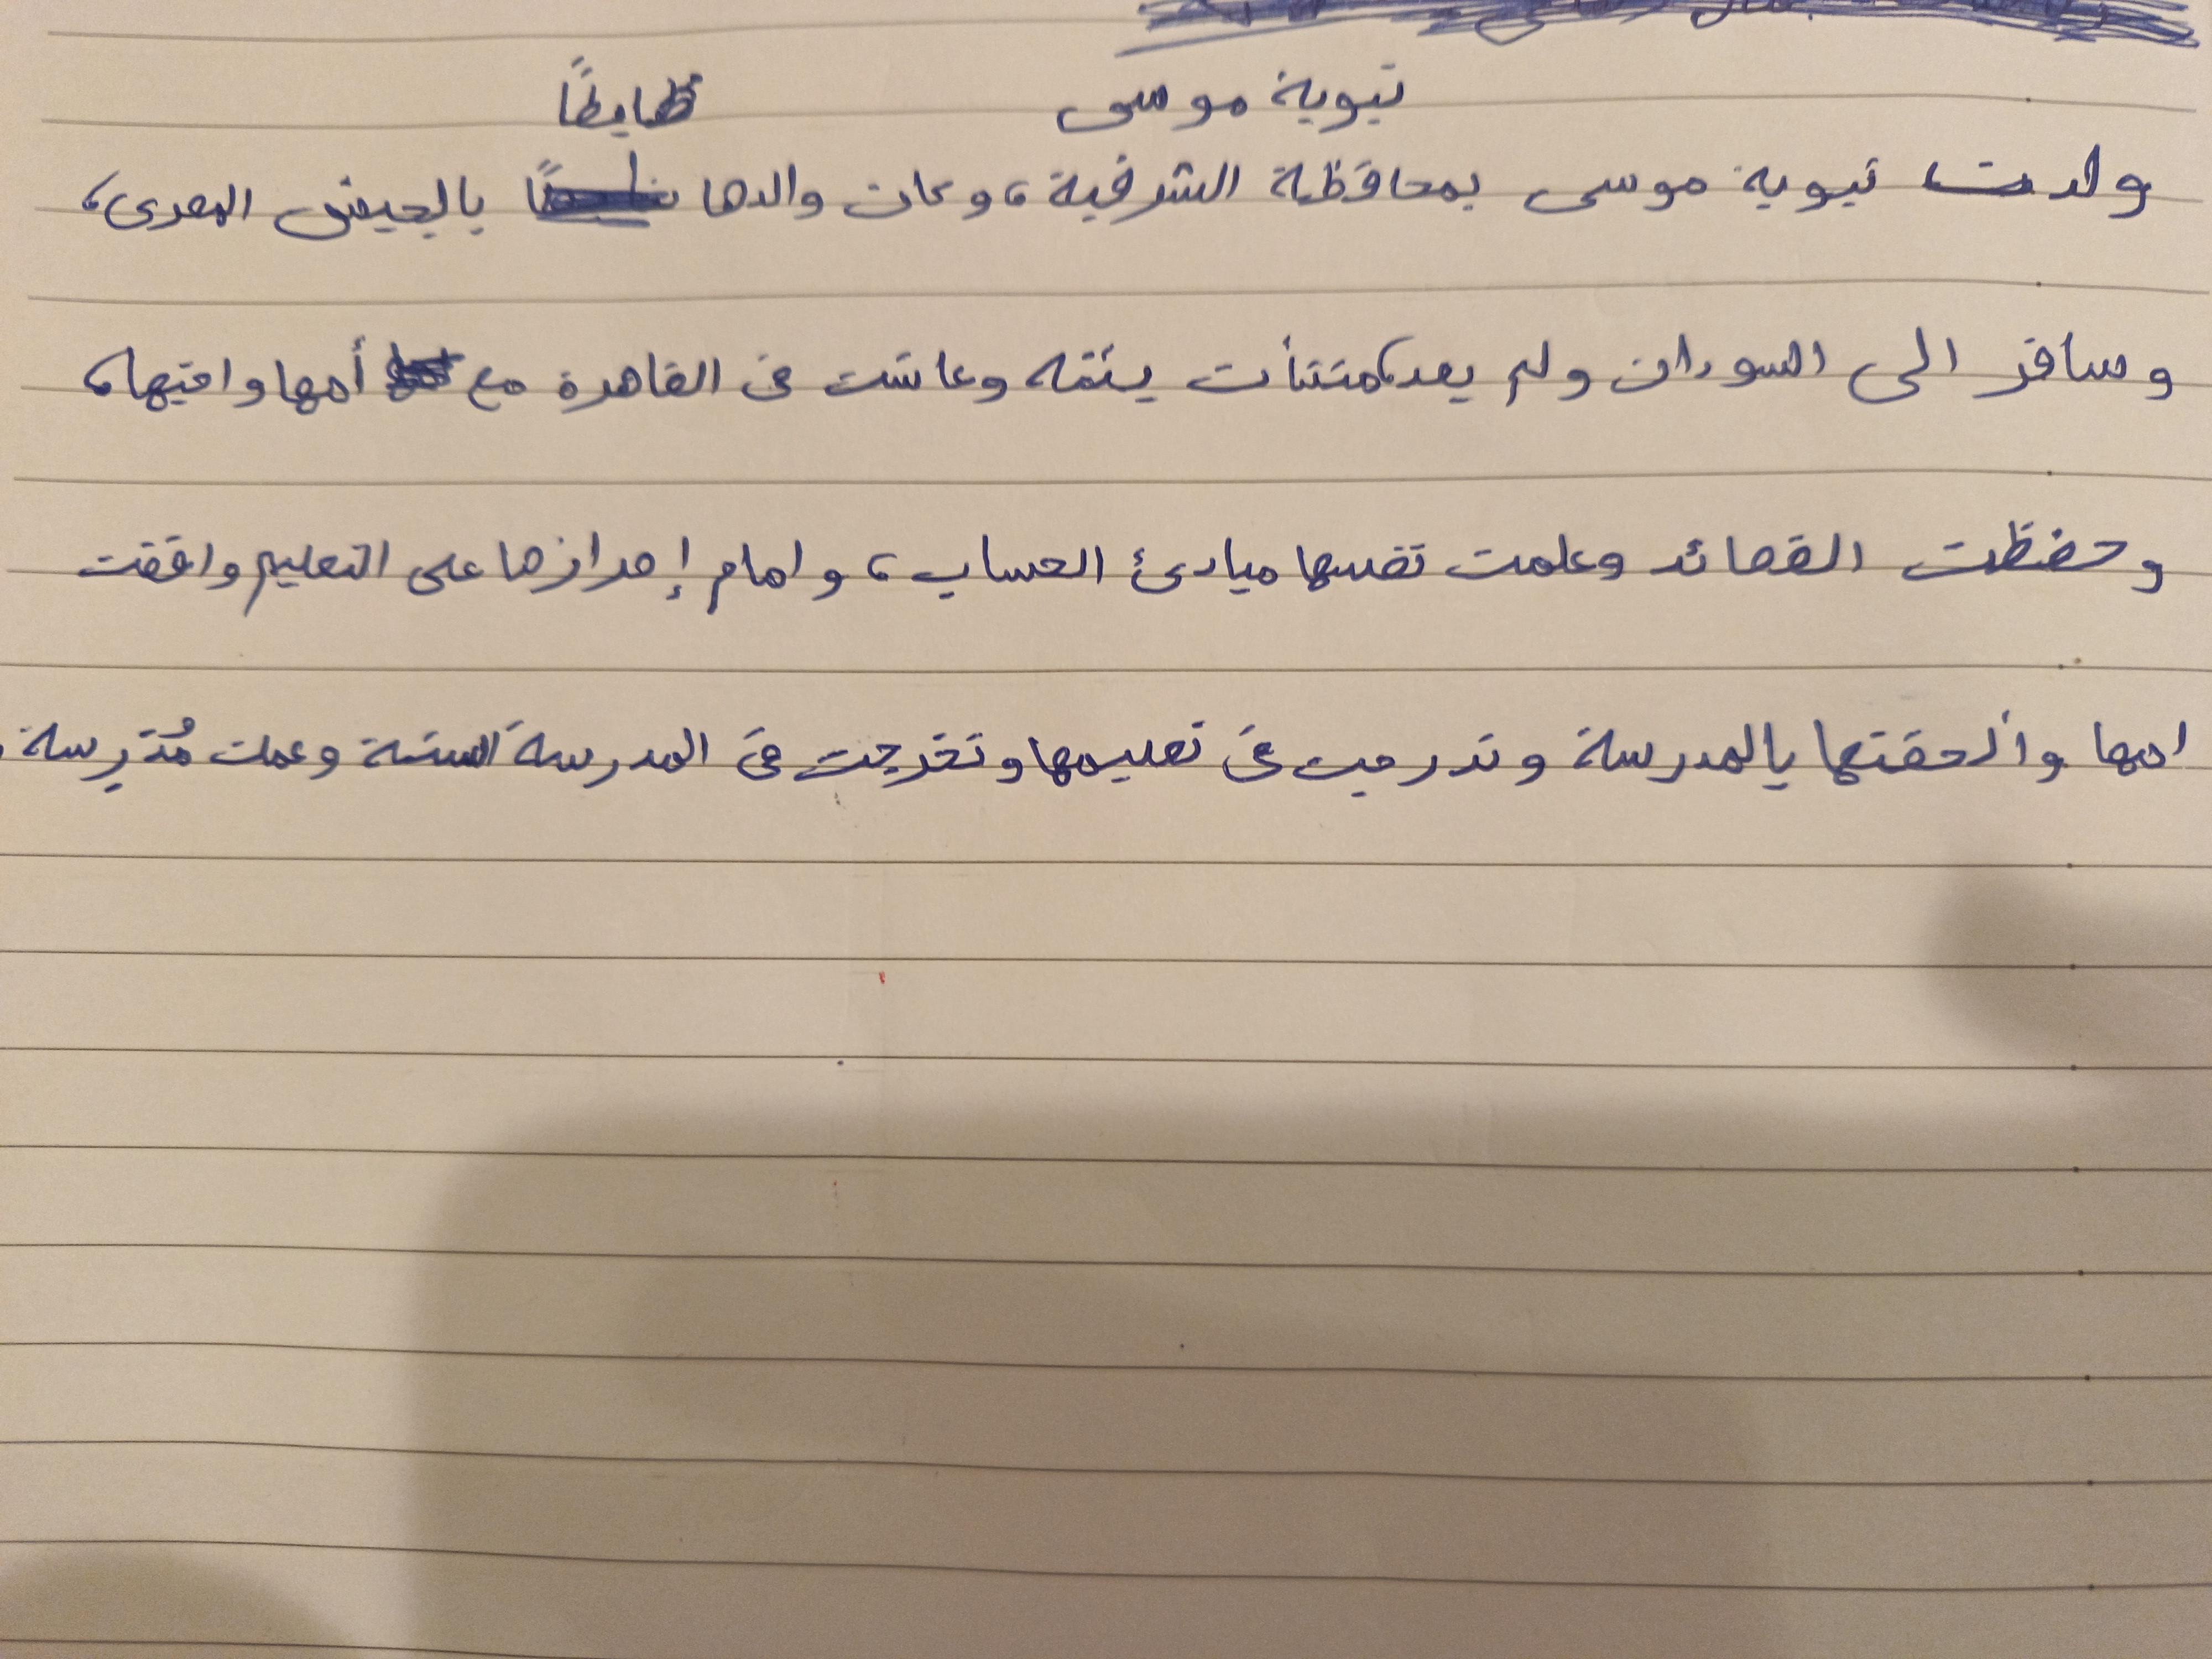 نبوية موسى ظابطًا
ولدت نبوية موسى بمحافظة الشرقية، وكان والدها بالجيش المصرى،
وسافر الى السودان ولم يعد، فنشأت يتمه وعاشت فى القاهرة مع أمها واخيها،
وحفظت القصائد وعلمت نفسها مبادئ الحساب، وامام إصرارها على التعليم وافقت
امها وألحقتها بالمدرسة وتدرجت فى تعليمها وتخرجت فى المدرسة السنية وعملت مُدَرِسة.